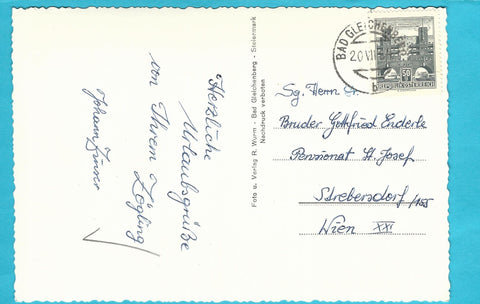 Herzliche
Urlaubsgrüße
von Ihrem
Zögling
Johann
Foto u. Verlag R. Wurm - Bad Gleichenberg - Steiermark
Nachdruck verboten
BAD GLEICHENBERG
20.VII
b
50
REPUBLIK ÖSTERREICH
Sg. Herrn Dr.
Bruder Gottfried Enderle
Pensionat St. Josef
Strebersdorf/
Wien XXI